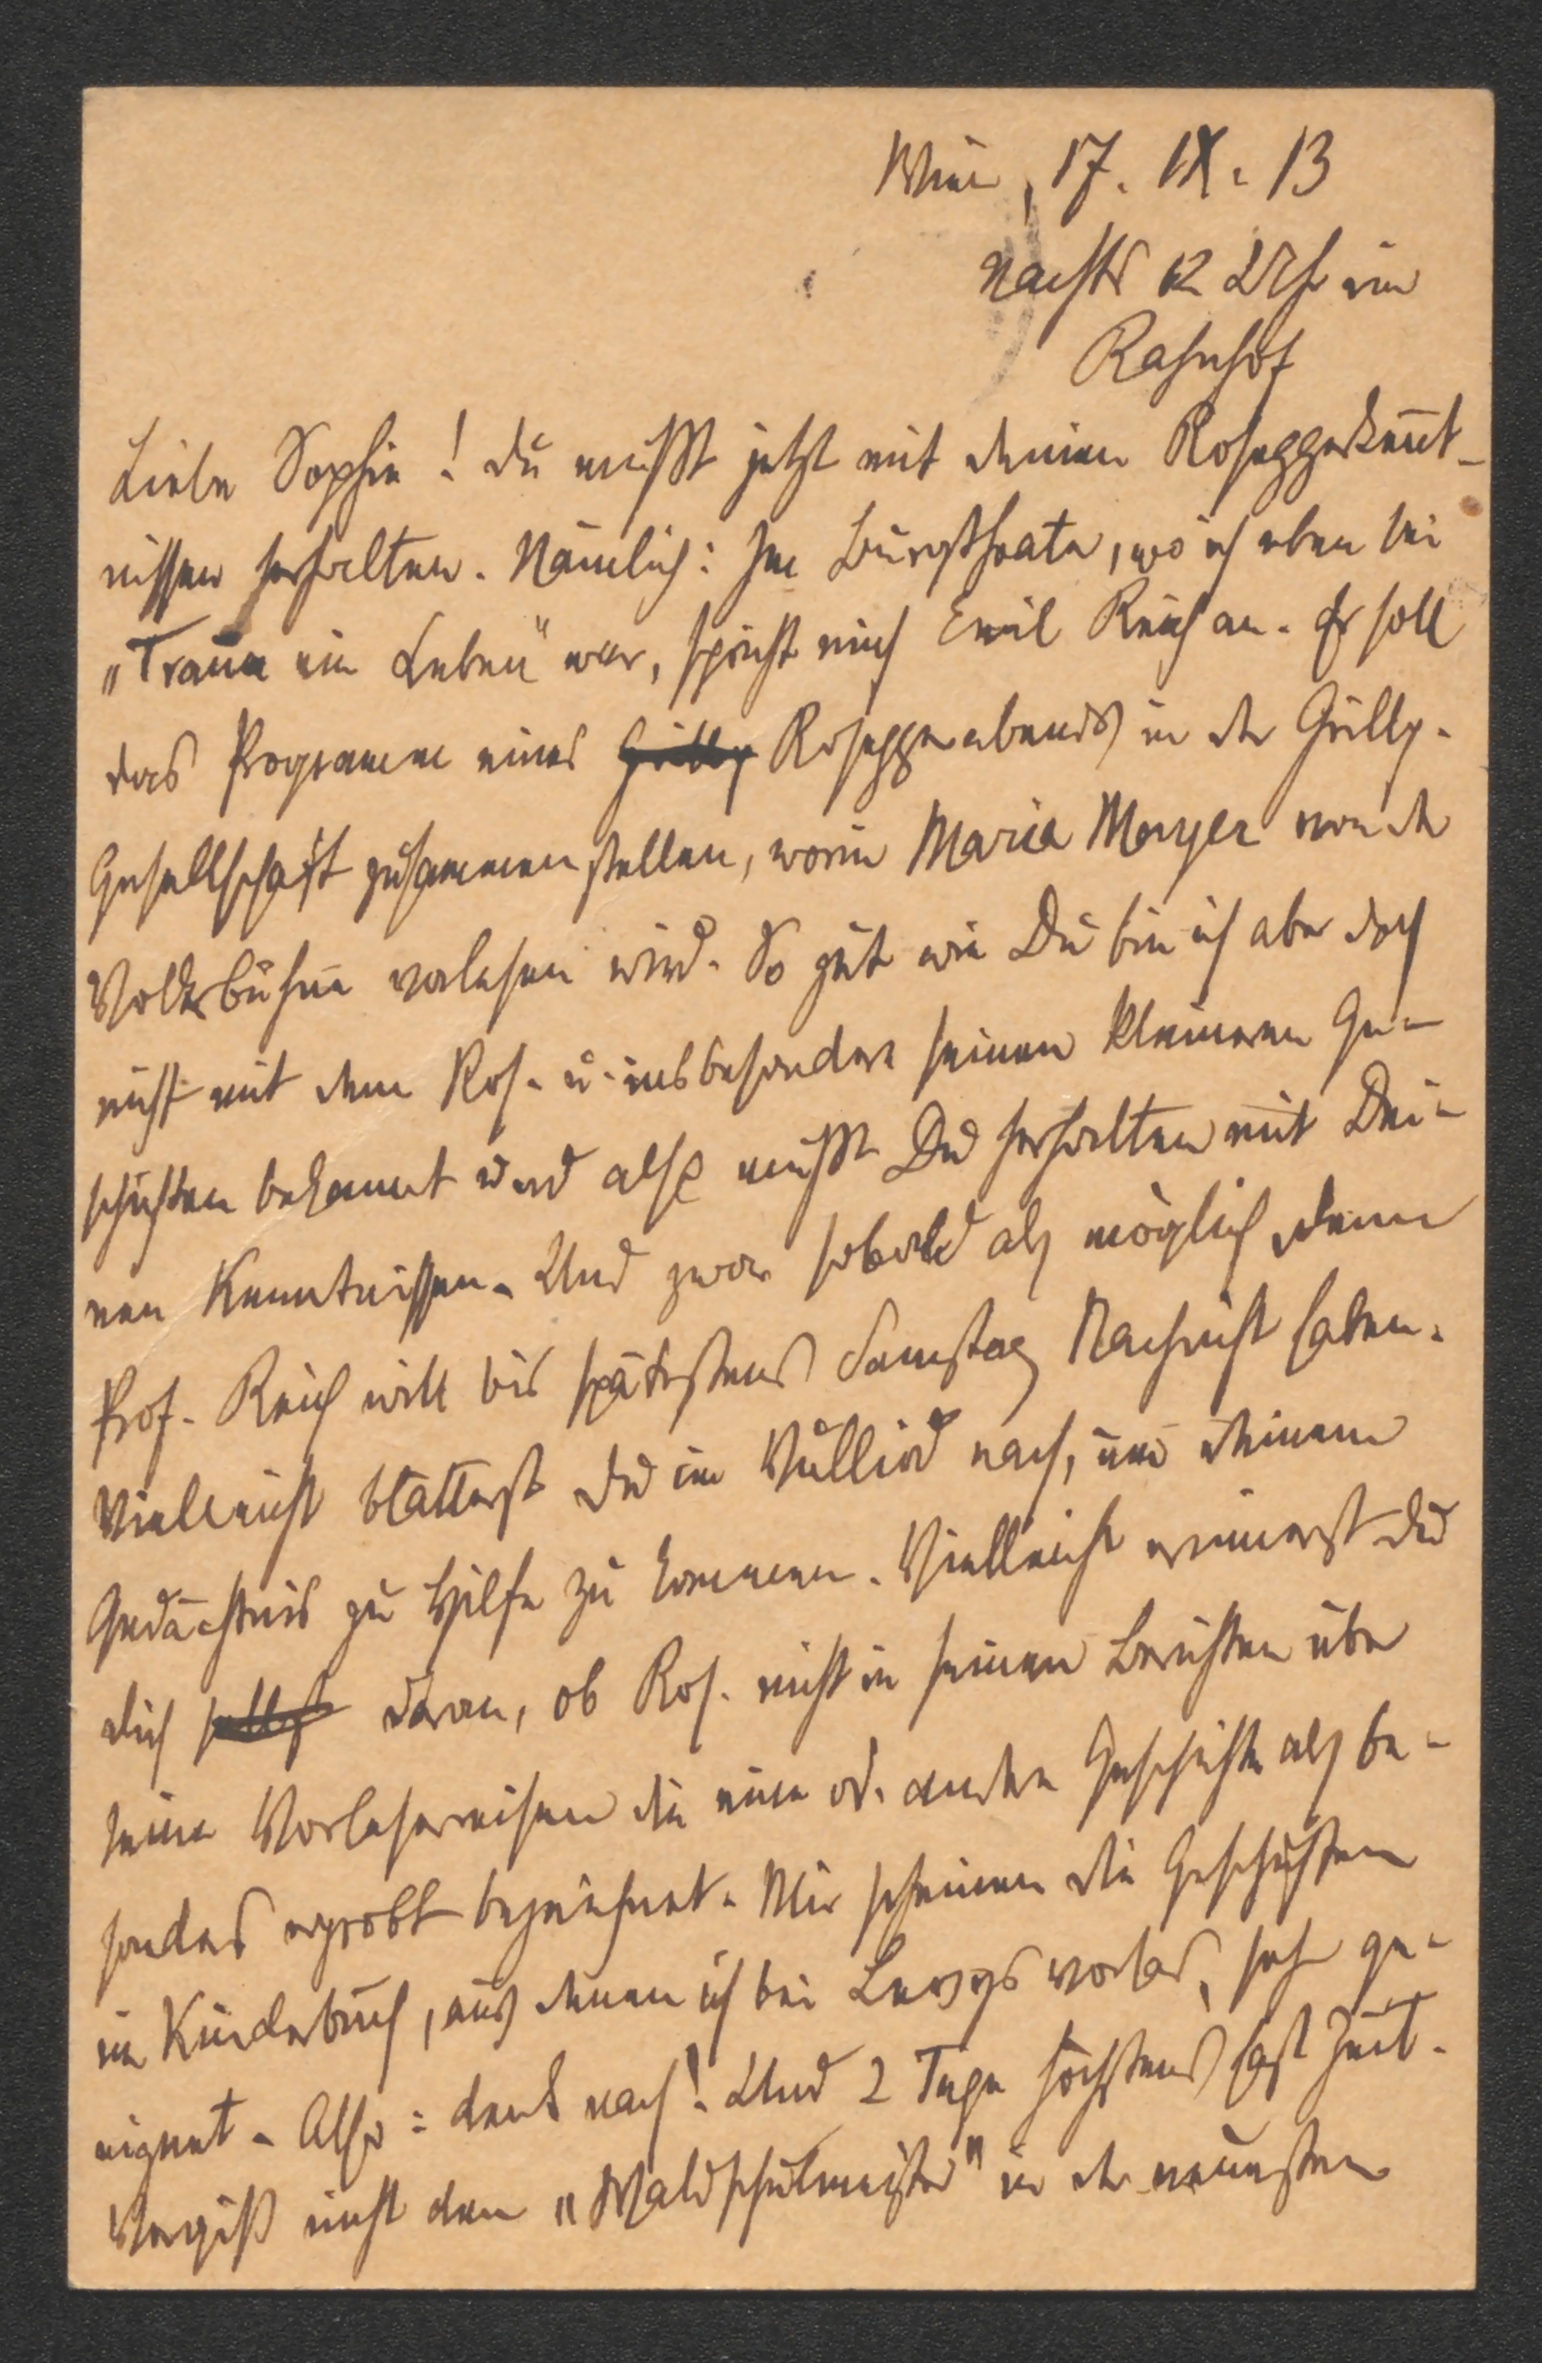 Wien, 17. IX. 13
nachts 12 Uhr im
Bahnhof
Liebe Sophie! Du mußt jetzt mit deinen Roseggerkennt-
nissen herhalten. Nämlich: Im Burgtheater, wo ich eben bei
„Traum ein Leben" war, spricht mich Emil Reich an. Er soll
das Programm eines Grillp Roseggerabends in der Grillp.
Gesellschaft zusammenstellen, worin Maria Mayer von der
Volksbühne vorlesen wird. So gut wie Du bin ich aber doch
nicht mit dem Ros. u. insbesondere seinen kleineren Ge-
schichten bekannt und also mußt Du herhalten mit Dei-
nen Kenntnissen. Und zwar sobald als möglich denn
Prof. Reich will bis spätestens Samstag Nachricht haben.
Vielleicht blätterst du im Vulliod nach, um deinem
Gedächtnis zu Hilfe zu kommen. Vielleicht erinnerst du
dich selbst daran, ob Ros. nicht in seinen Berichten über
seine Vorlesereisen die eine od. andere Geschichte als be-
sonders erprobt bezeichnet. Mir scheinen die Geschichten
im Kinderbuch, aus denen ich bei vorlas, sehr ge-
eignet. Also: denk nach! Und 2 Tage höchstens hast Zeit.
Vergiß nicht den „Waldschulmeister" in der neuesten